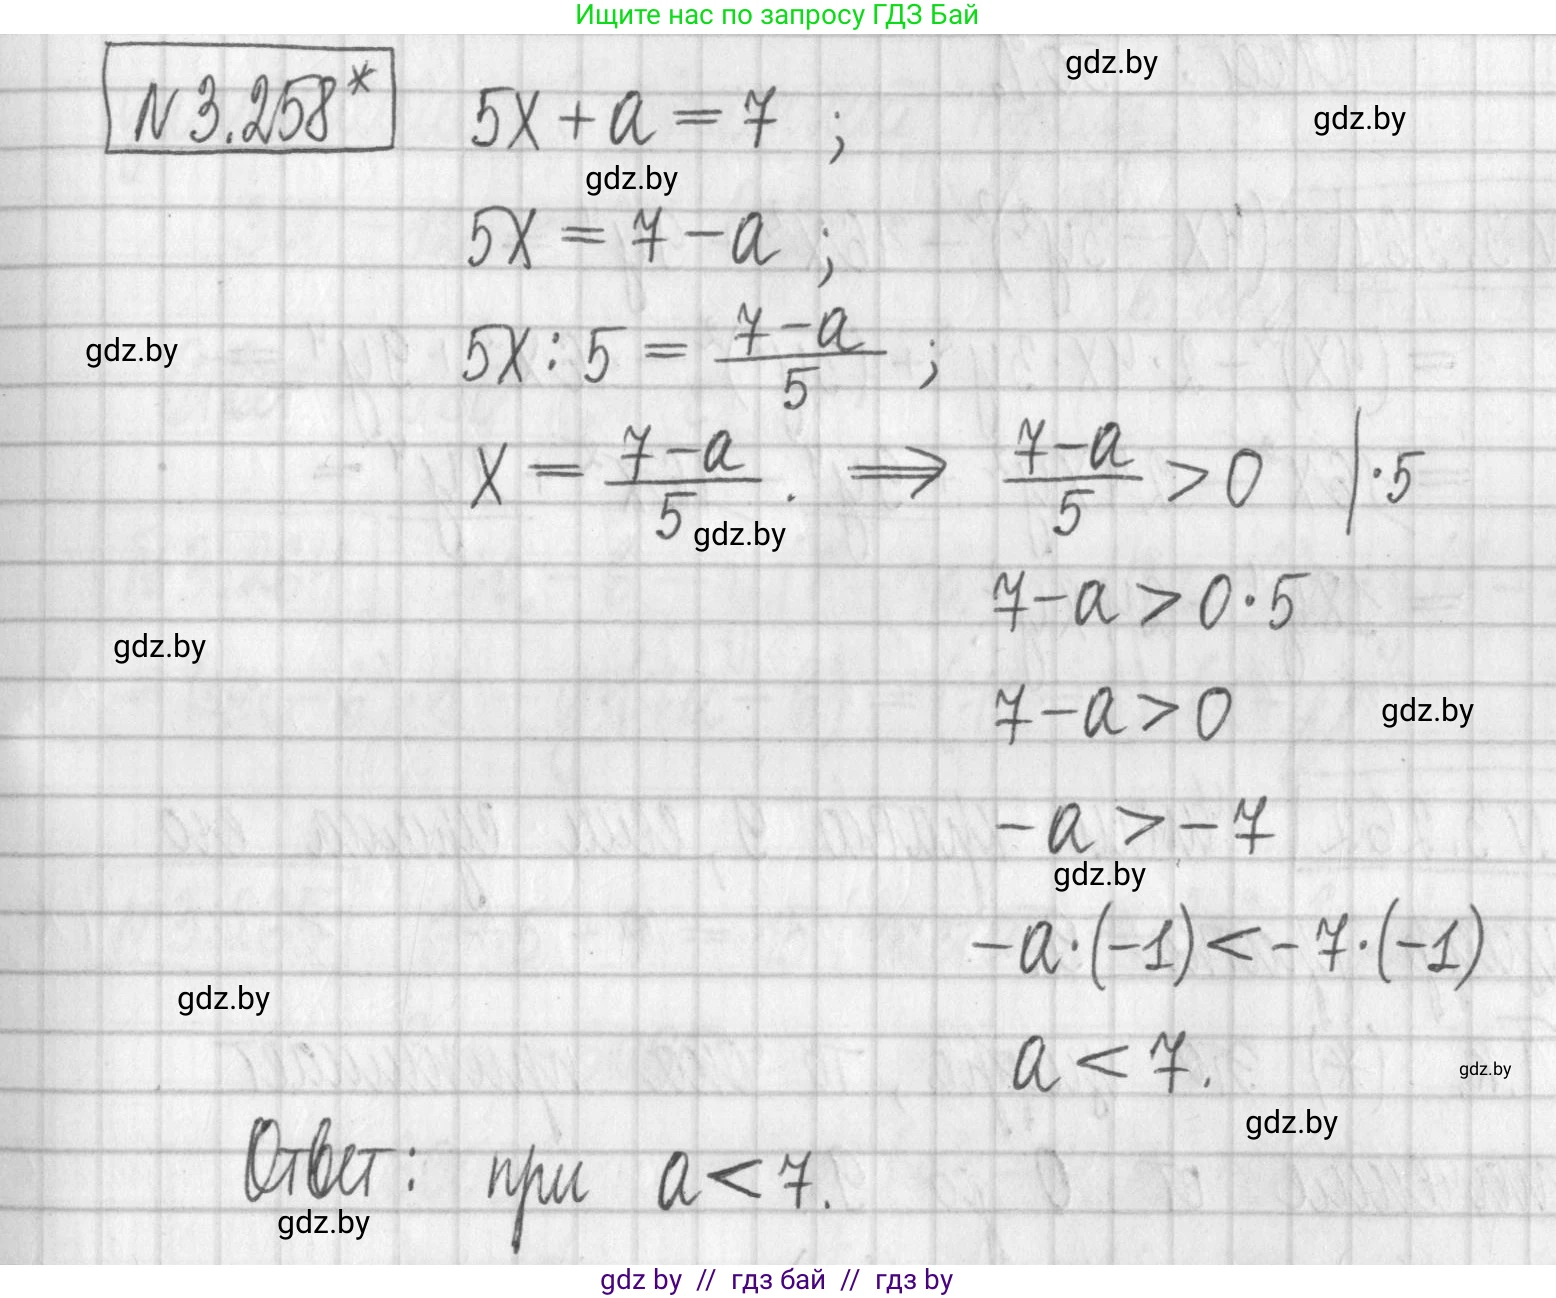 Ищите нас по запросу ГДЗ Бай
gdz.by
N 3.258* 5x + a = 7 ;
gdz.by
gdz.by
5x = 7 - a ;
gdz.by
5x : 5 = \frac{7-a}{5} ;
x = \frac{7-a}{5} . ⟹ \frac{7-a}{5} > 0 | · 5
gdz.by
7 - a > 0 · 5
gdz.by
7 - a > 0
gdz.by
- a > - 7
gdz.by
- a · (-1) < - 7 · (-1)
gdz.by
a < 7.
gdz.by
gdz.by
Ответ: при a < 7.
gdz.by
gdz by // гдз бай // гдз by